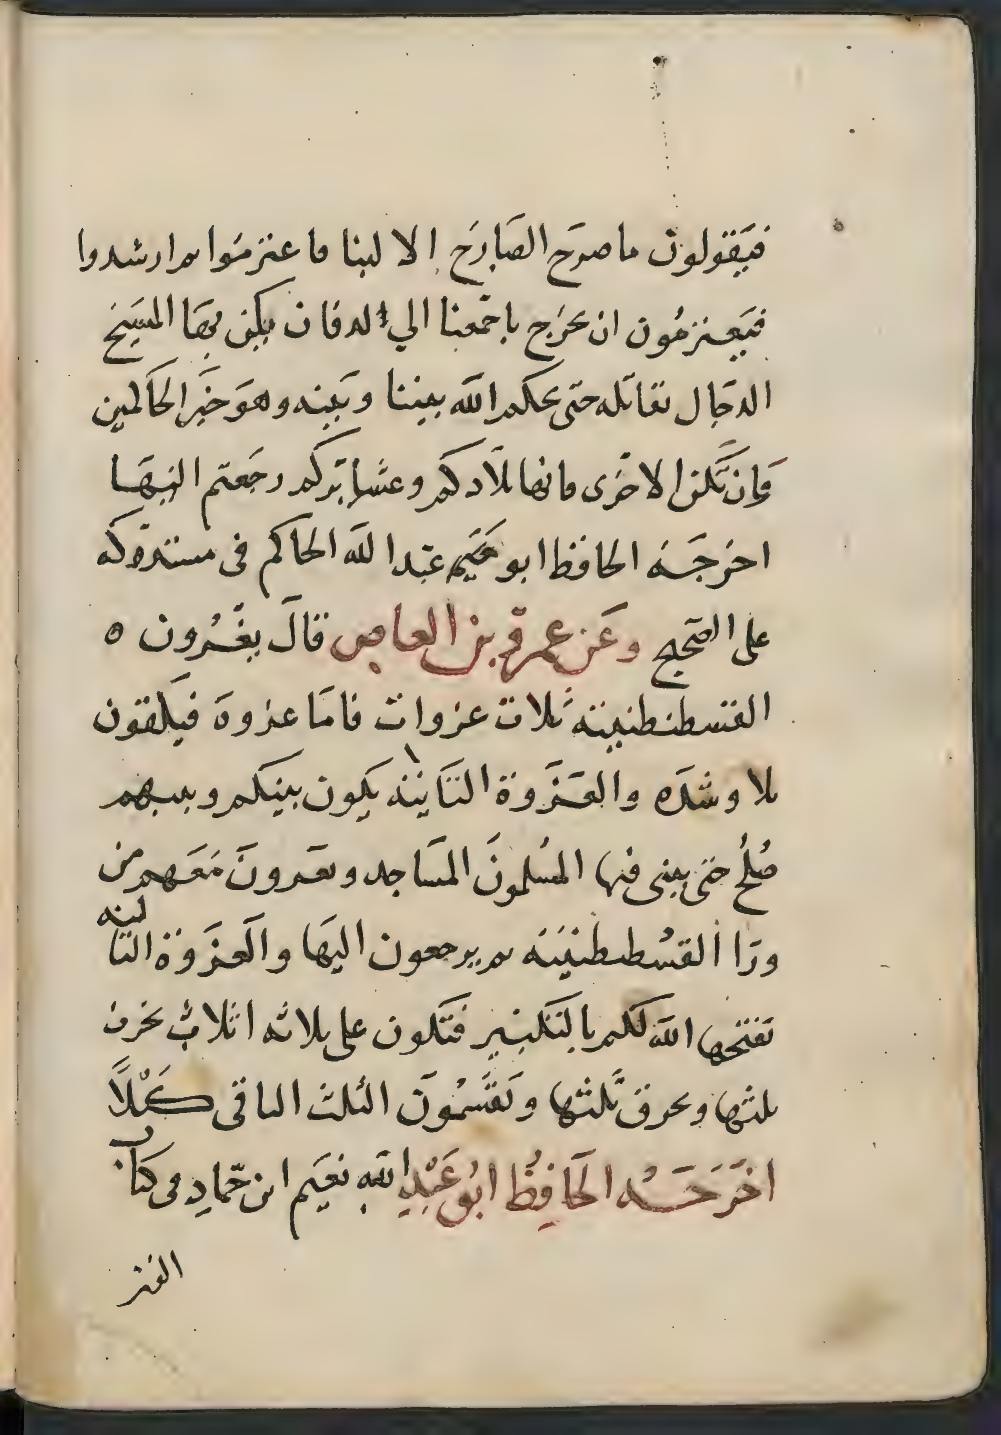 فيقولون ما صرخ الصارخ الا لنبا فاعتزموا ثم ارشدوا
فيعتزمون ان نخرج باجمعنا الي لد فان يكن بها المسيخ
الدجال نقاتله حتى يحكم الله بيننا وبينه وهو خير الحاكمين
وان تكن الاخرى فانها بلادكم وعشايركم رجعتم اليها
اخرجه الحافظ ابو عبد الله الحاكم فى مستدركه
على الصحيح وعن عمرو بن العاص قال يغزون ه
القسطنطينيه ثلاث غزوات فاما غزوة فيلقون
بلا وشده والغزوة الثانية يكون بينكم وبينهم
صلح حتى يبنى فيها المسلمون المساجد ويغزون معهم من
ورا القسطنطينيه ثم يرجعون اليها والغزوة الثالثه
تفتحها الله لكم بالتكبير فتكون على ثلاثه اثلاث يخرب
ثلثها ويحرق ثلثها وتقسمون الثلث الباقى كيلا
اخرجه الحافظ ابو عبد الله نعيم ابن حماد فى كتاب
الفتن